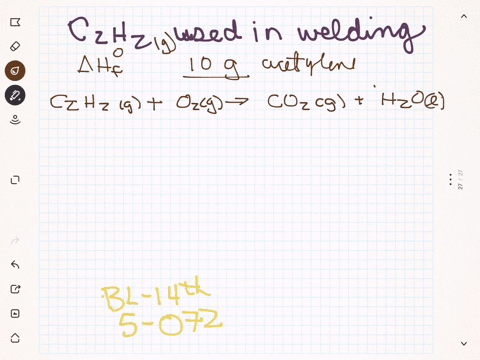 C2H2(g) used in welding
ΔHf° 10 g acetylene
C2H2(g) + O2(g) → CO2(g) + H2O(l)
BL-14th
5-072
27/27